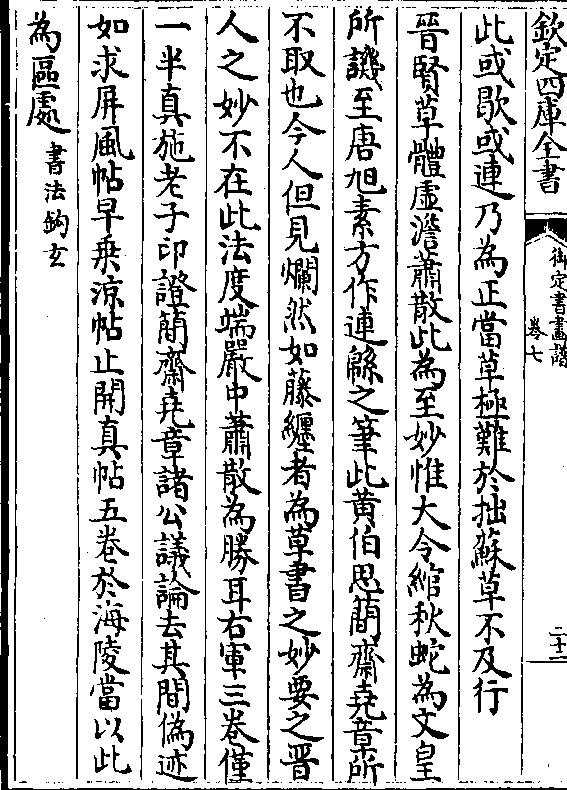 欽定四庫全書
御定書畫譜
卷七
二十二
此或歇或連乃為正當草極難於拙蘇草不及行
晉賢草體虛澹蕭散此為至妙惟大令綰秋蛇為文皇
所譏至唐旭素方作連緜之筆此黄伯思簡齋堯章所
不取也今人但見爛然如藤纏者為草書之妙要之晉
人之妙不在此法度端嚴中蕭散為勝耳右軍三卷僅
一半真施老子印證簡齋堯章諸公議論去其間偽迹
如求屏風帖早乗涼帖止開真帖五卷於海陵當以此
為區處書法鈎𤣥